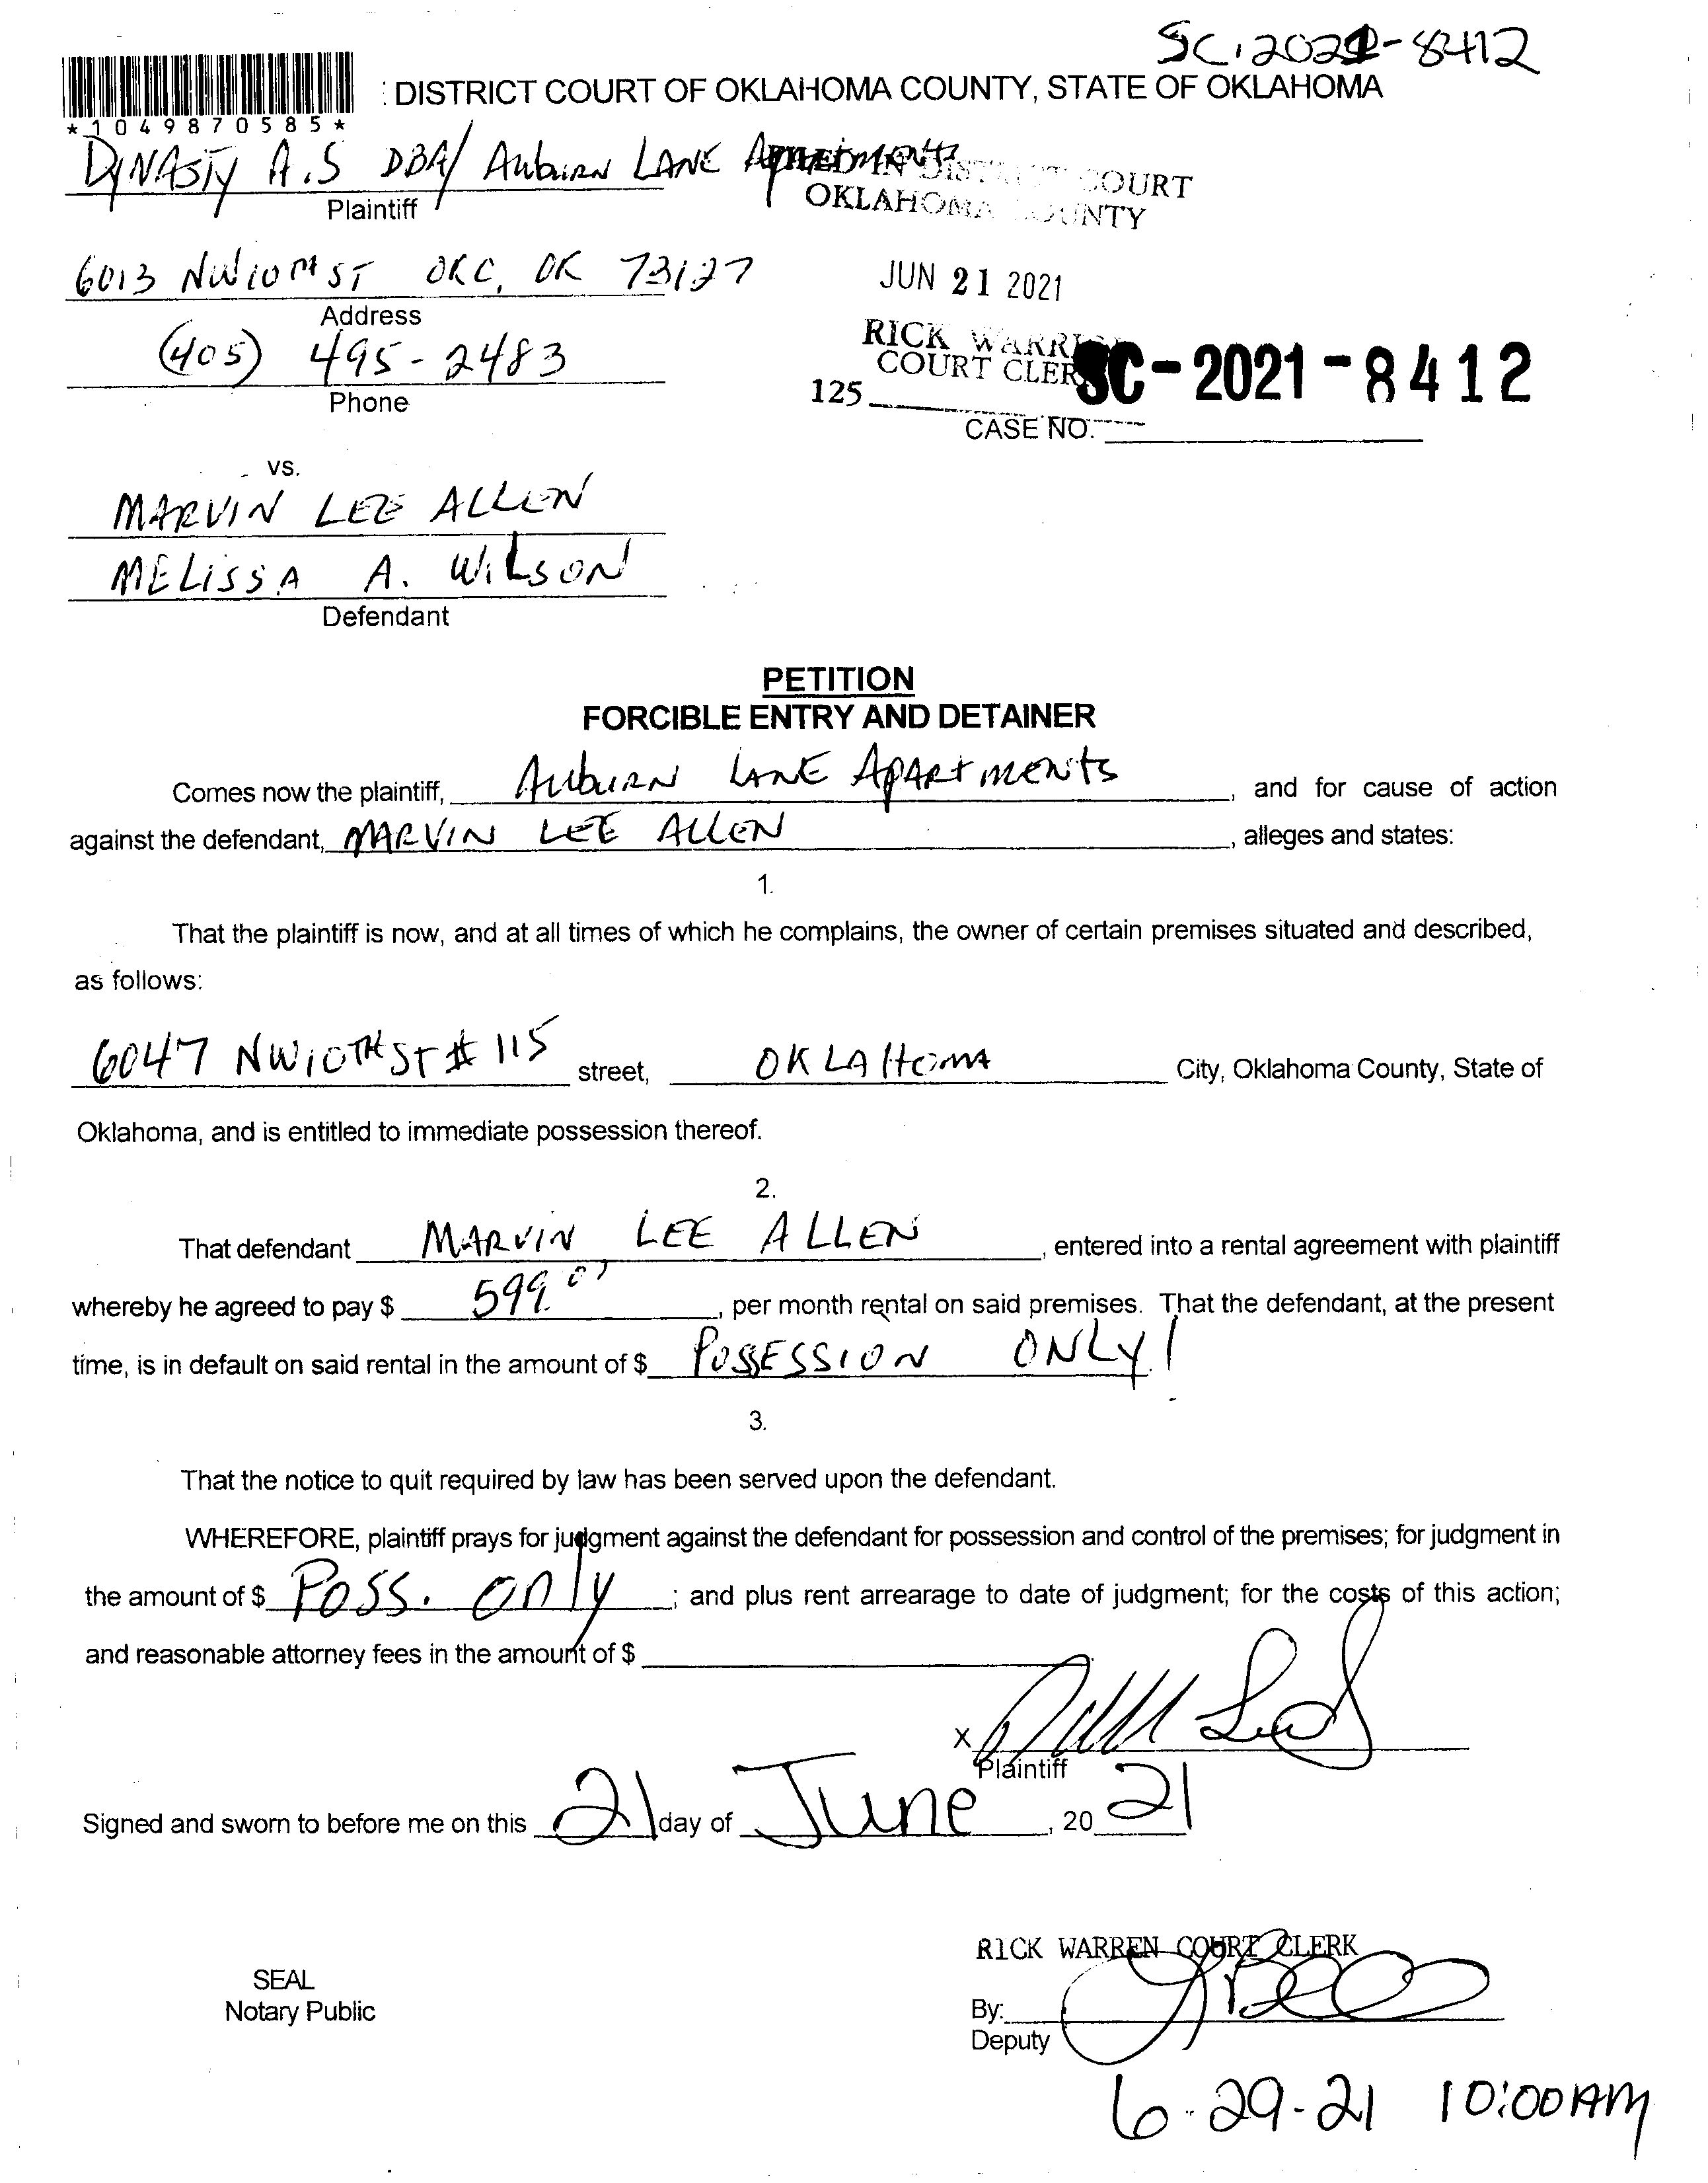 SC-2021-8412
DISTRICT COURT OF OKLAHOMA COUNTY, STATE OF OKLAHOMA
*1049870585*
DYNASTY A.S DBA/ AUBURN LANE Apartments
Plaintiff
FILED IN DISTRICT COURT
OKLAHOMA COUNTY
6013 NW 10TH ST OKC, OK 73127
Address
JUN 21 2021
(405) 495-2483
Phone
RICK WARREN
COURT CLERK
SC-2021-8412
125
CASE NO.
vs.
MARVIN LEE ALLEN
MELISSA A. WILSON
Defendant
PETITION
FORCIBLE ENTRY AND DETAINER
Comes now the plaintiff, AUBURN LANE APARTMENTS, and for cause of action
against the defendant, MARVIN LEE ALLEN, alleges and states:
1.
That the plaintiff is now, and at all times of which he complains, the owner of certain premises situated and described,
as follows:
6047 NW 10TH ST # 115 street, OKLAHOMA City, Oklahoma County, State of
Oklahoma, and is entitled to immediate possession thereof.
2.
That defendant MARVIN LEE ALLEN, entered into a rental agreement with plaintiff
whereby he agreed to pay $ 599.00, per month rental on said premises. That the defendant, at the present
time, is in default on said rental in the amount of $ POSSESSION ONLY!
3.
That the notice to quit required by law has been served upon the defendant.
WHEREFORE, plaintiff prays for judgment against the defendant for possession and control of the premises; for judgment in
the amount of $ Poss. only; and plus rent arrearage to date of judgment; for the costs of this action;
and reasonable attorney fees in the amount of $
X
Plaintiff
Signed and sworn to before me on this 21 day of June, 20 21
RICK WARREN COURT CLERK
SEAL
Notary Public
By:
Deputy
6-29-21 10:00AM